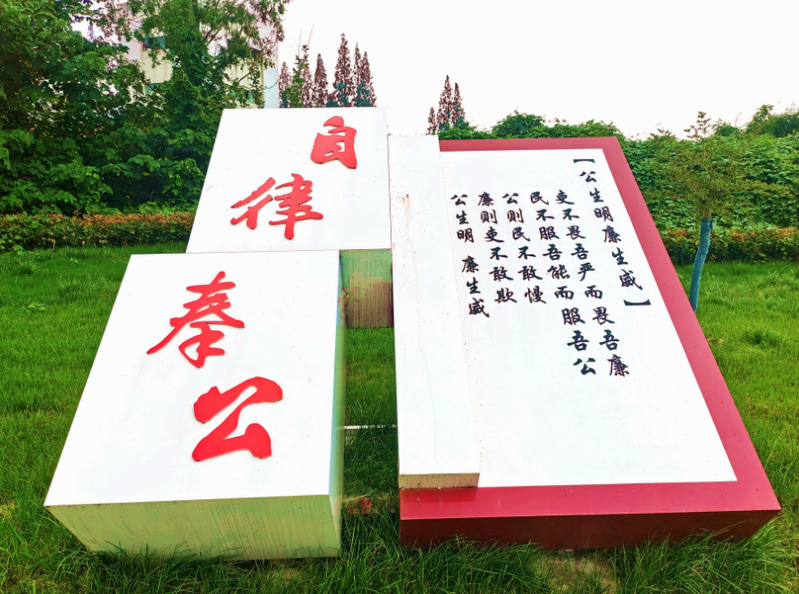 自律
奉公
【公生明廉生威】
吏不畏吾严而畏吾廉
民不服吾能而服吾公
公则民不敢慢
廉则吏不敢欺
公生明 廉生威